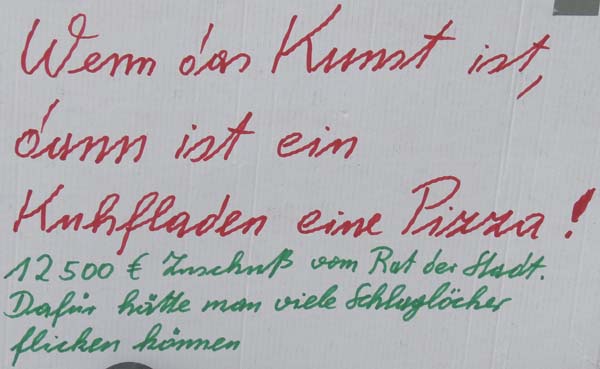 Wenn das Kunst ist,
dann ist ein
Kuhfladen eine Pizza!
12500 € Zuschuß vom Rat der Stadt.
Dafür hätte man viele Schlaglöcher
flicken können